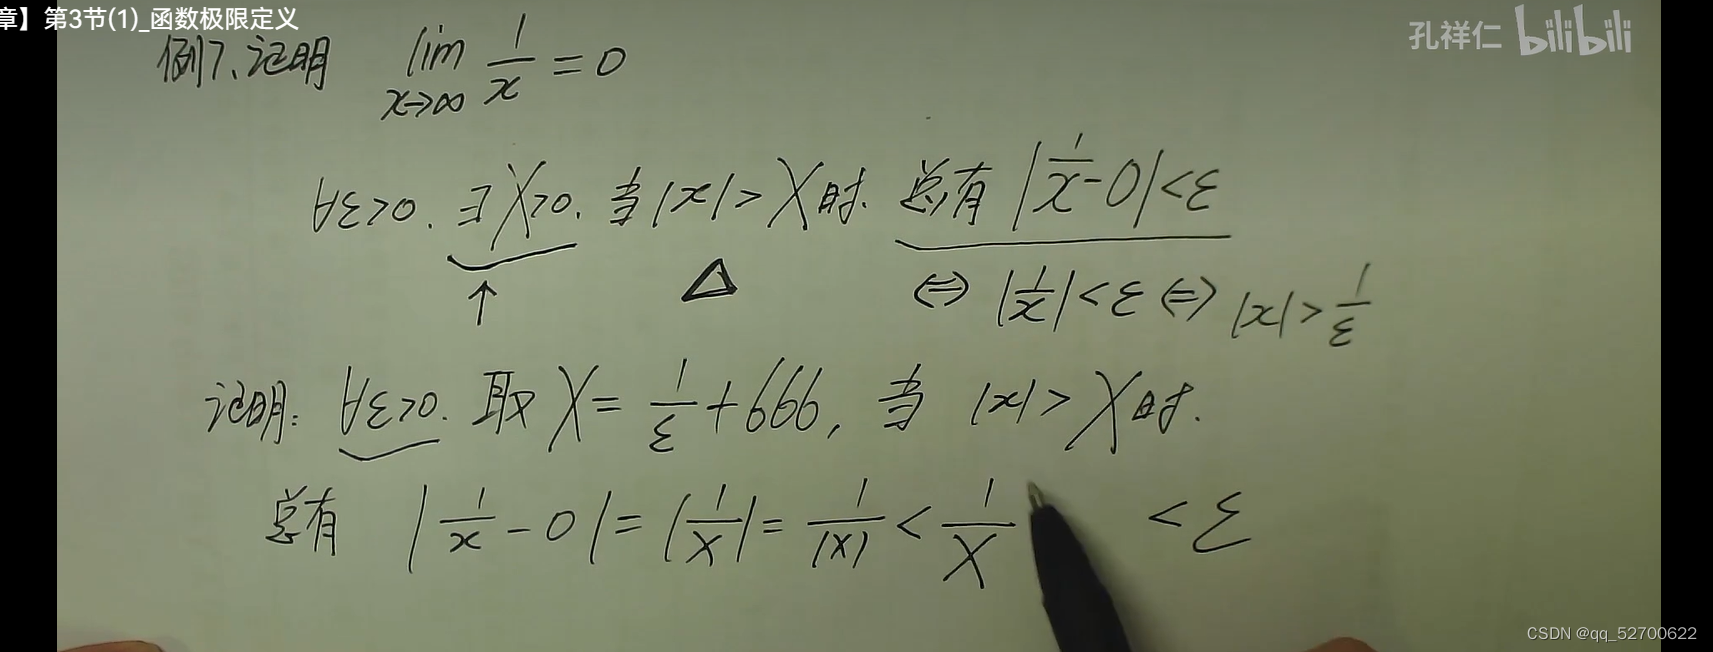 章】第3节(1)_函数极限定义
孔祥仁 bilibili
例7、证明 lim x→∞ 1/x = 0
∀ε>0. ∃X>0. 当|x|>X时. 总有 |1/x-0|<ε
↑ △ ⇔ |1/x|<ε ⇔ |x|>1/ε
证明: ∀ε>0. 取X=1/ε+666, 当 |x|>X时.
总有 |1/x-0|=|1/x|=1/|x|<1/X <ε
CSDN @qq_52700622